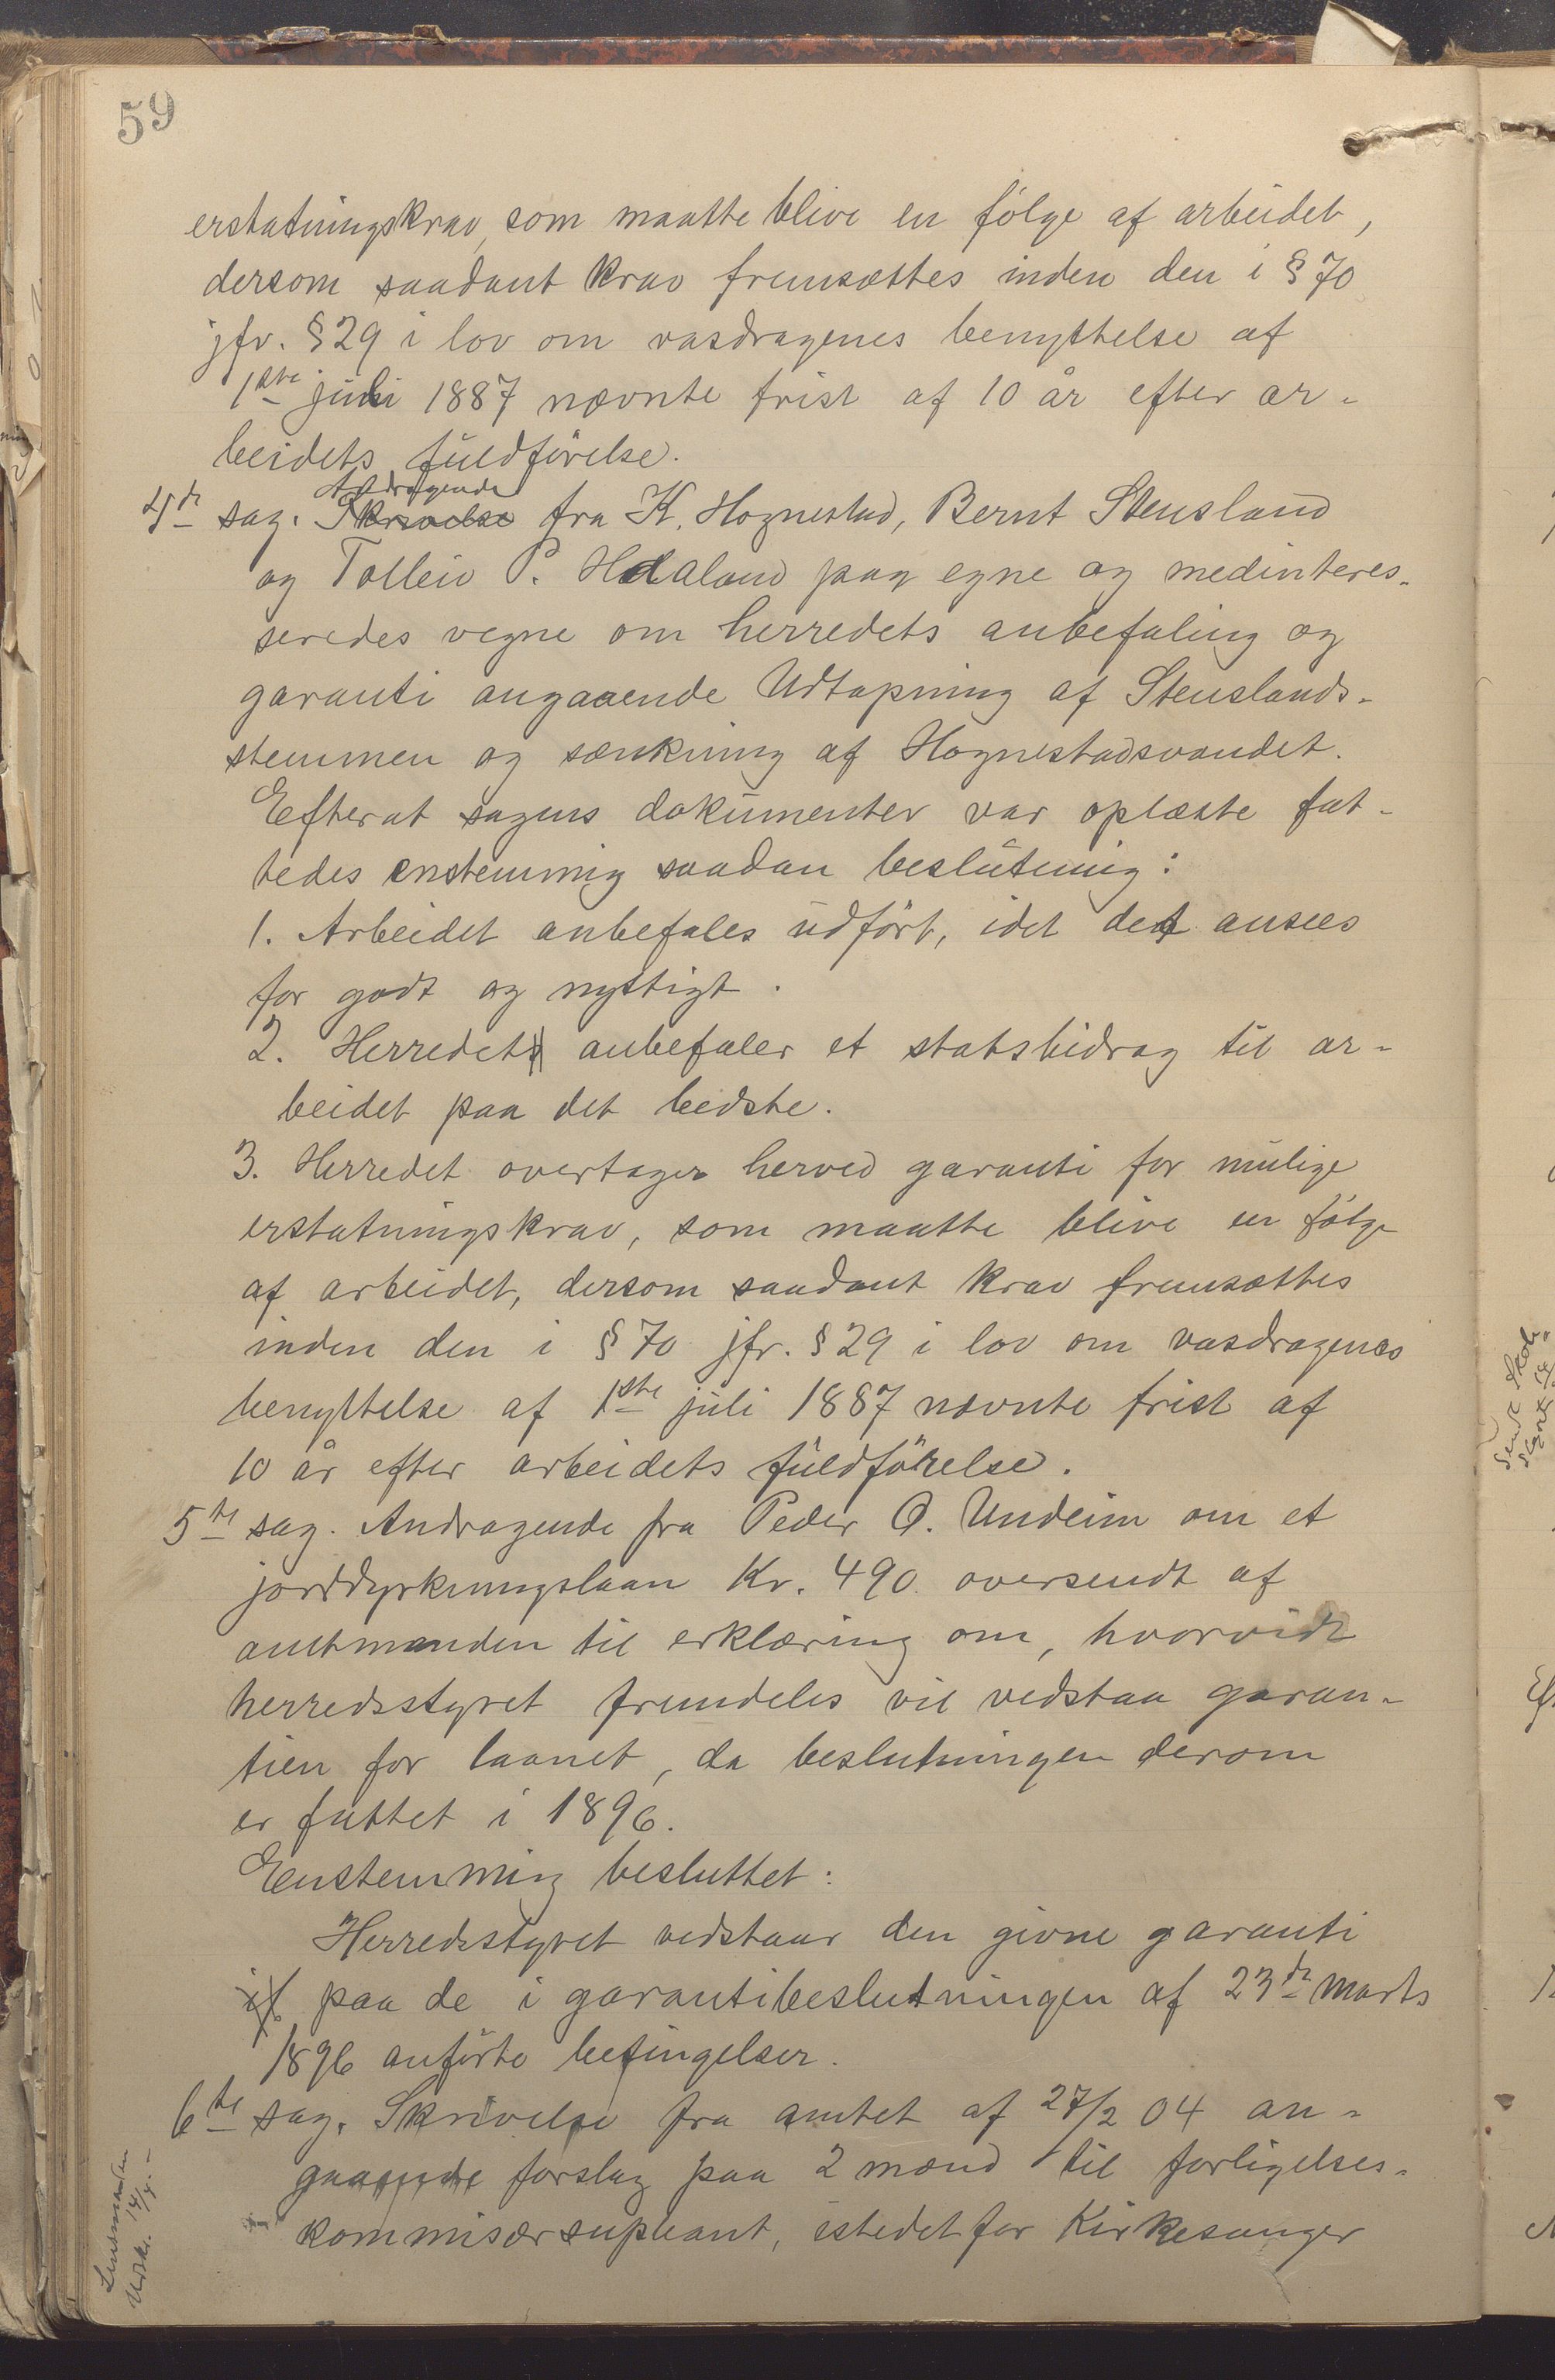 59
erstatningskrav, som maatte blive en følge af arbeidet,
dersom saadant krav fremsættes inden den i § 70
jfr. § 29 i lov om vasdragenes benyttelse af
1ste juli 1887 nævnte frist af 10 år efter ar-
beidets fuldførelse.
Andragende
4de sag. Skrivelse fra K. Hognestad, Bernt Stensland
og Tolleiv P. Haaland paa egne og medinteres-
seredes vegne om herredets anbefaling og
garanti angaaende Udtapning af Stenslands-
stemmen og sænkning af Hognestadsvandet.
Efterat sagens dokumenter var oplæste fat-
tedes enstemmig saadan beslutning:
1. Arbeidet anbefales udført, idet det ansees
for godt og nyttigt.
2. Herredet anbefaler et statsbidrag til ar-
beidet paa det bedste.
3. Herredet overtager herved garanti for mulige
erstatningskrav, som maatte blive en følge
af arbeidet, dersom saadant krav fremsættes
inden den i § 70 jfr. § 29 i lov om vasdragenes
benyttelse af 1ste juli 1887 nævnte frist af
10 år efter arbeidets fuldførelse.
5te sag. Andragende fra Peder O. Undeim om et
jorddyrkningslaan Kr. 490 oversendt af
amtmanden til erklæring om, hvorvidt
herredsstyret fremdeles vil vedstaa garan-
tien for laanet, da beslutningen derom
er fattet i 1896.
Enstemmig besluttet:
Herredsstyret vedstaar den givne garanti
paa de i garantibeslutningen af 23de Marts
1896 anførte betingelser.
6te sag. Skrivelse fra amtet af 27/2 04 an-
gaaende forslag paa 2 mænd til forligelses-
kommisærsupleant, istedetfor Kirkesanger
Lensmanden
Udskr. 14/4. -